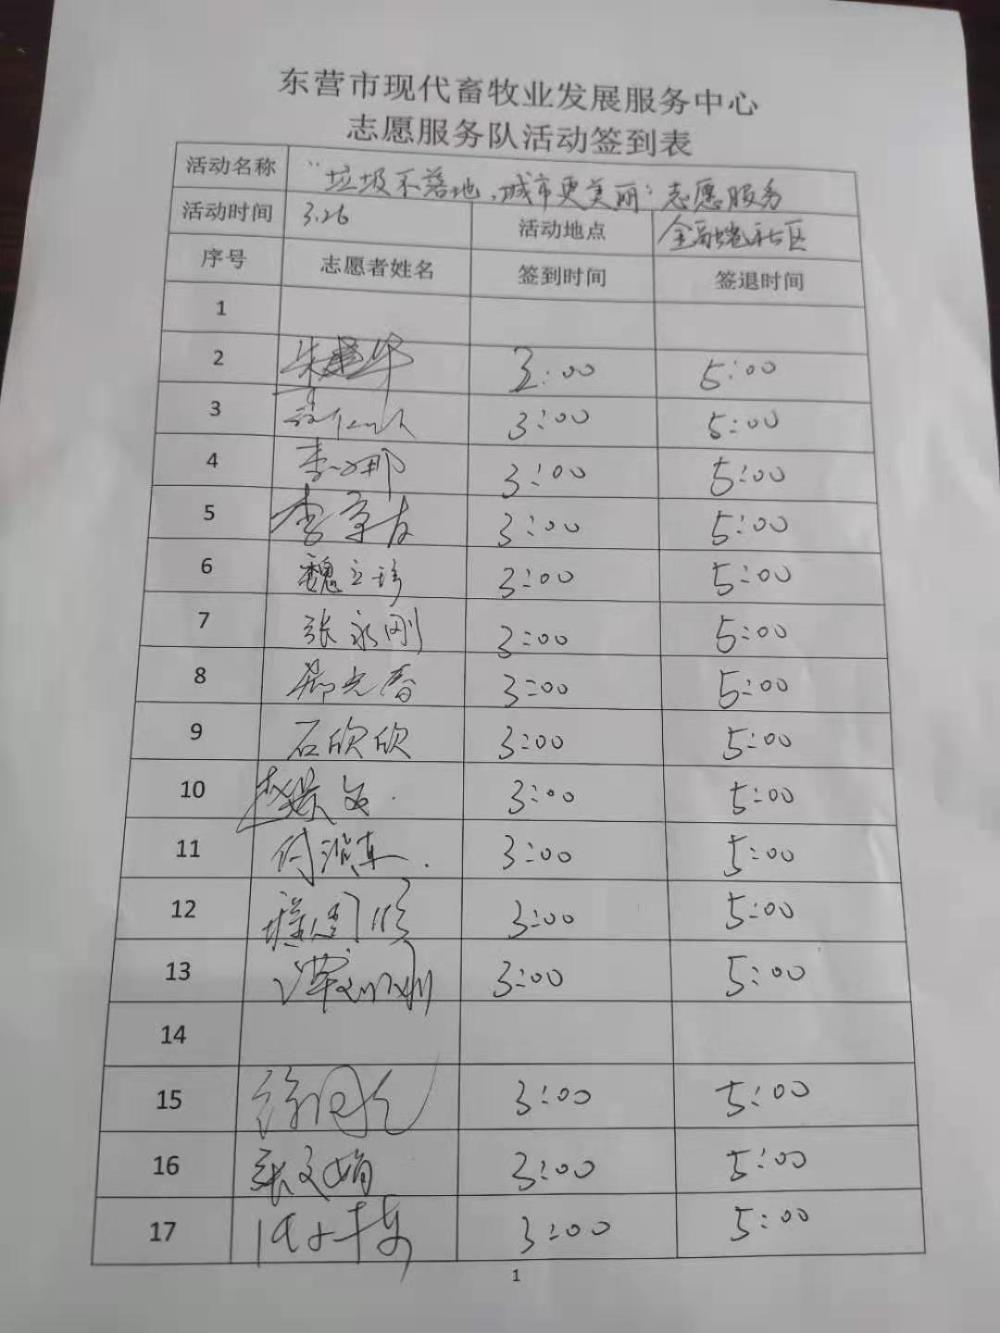 东营市现代畜牧业发展服务中心
志愿服务队活动签到表
活动名称 "垃圾不落地,城市更美丽"志愿服务
活动时间 3.26 活动地点 金融港社区
序号 志愿者姓名 签到时间 签退时间
1
2 朱建华 3:00 5:00
3 3:00 5:00
4 李娜 3:00 5:00
5 李京友 3:00 5:00
6 魏立珍 3:00 5:00
7 张永刚 3:00 5:00
8 郝光香 3:00 5:00
9 石欣欣 3:00 5:00
10 3:00 5:00
11 3:00 5:00
12 3:00 5:00
13 3:00 5:00
14
15 3:00 5:00
16 张文娟 3:00 5:00
17 3:00 5:00
1